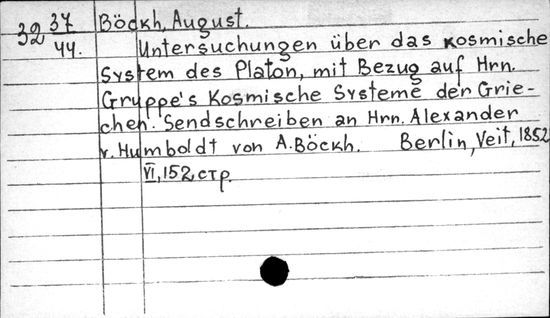 32 37/44. Böckh, August.
Untersuchungen über das kosmische
System des Platon, mit Bezug auf Hrn.
Gruppe's Kosmische Systeme der Grie-
chen. Sendschreiben an Hrn. Alexander
v. Humboldt von A. Böckh. Berlin, Veit, 1852
VI, 152, стр.